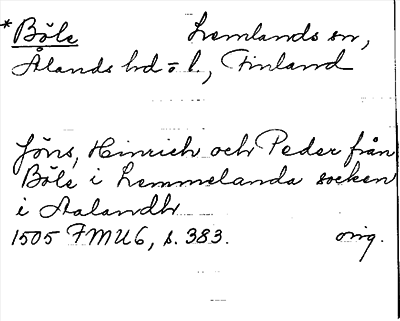 *Böle Lemlands sn,
Ålands hd = l., Finland
Jöns, Hinrich och Peder från
Böle i Lemmelanda socken
i Aalandh
1505 FMU6, s. 383. orig.